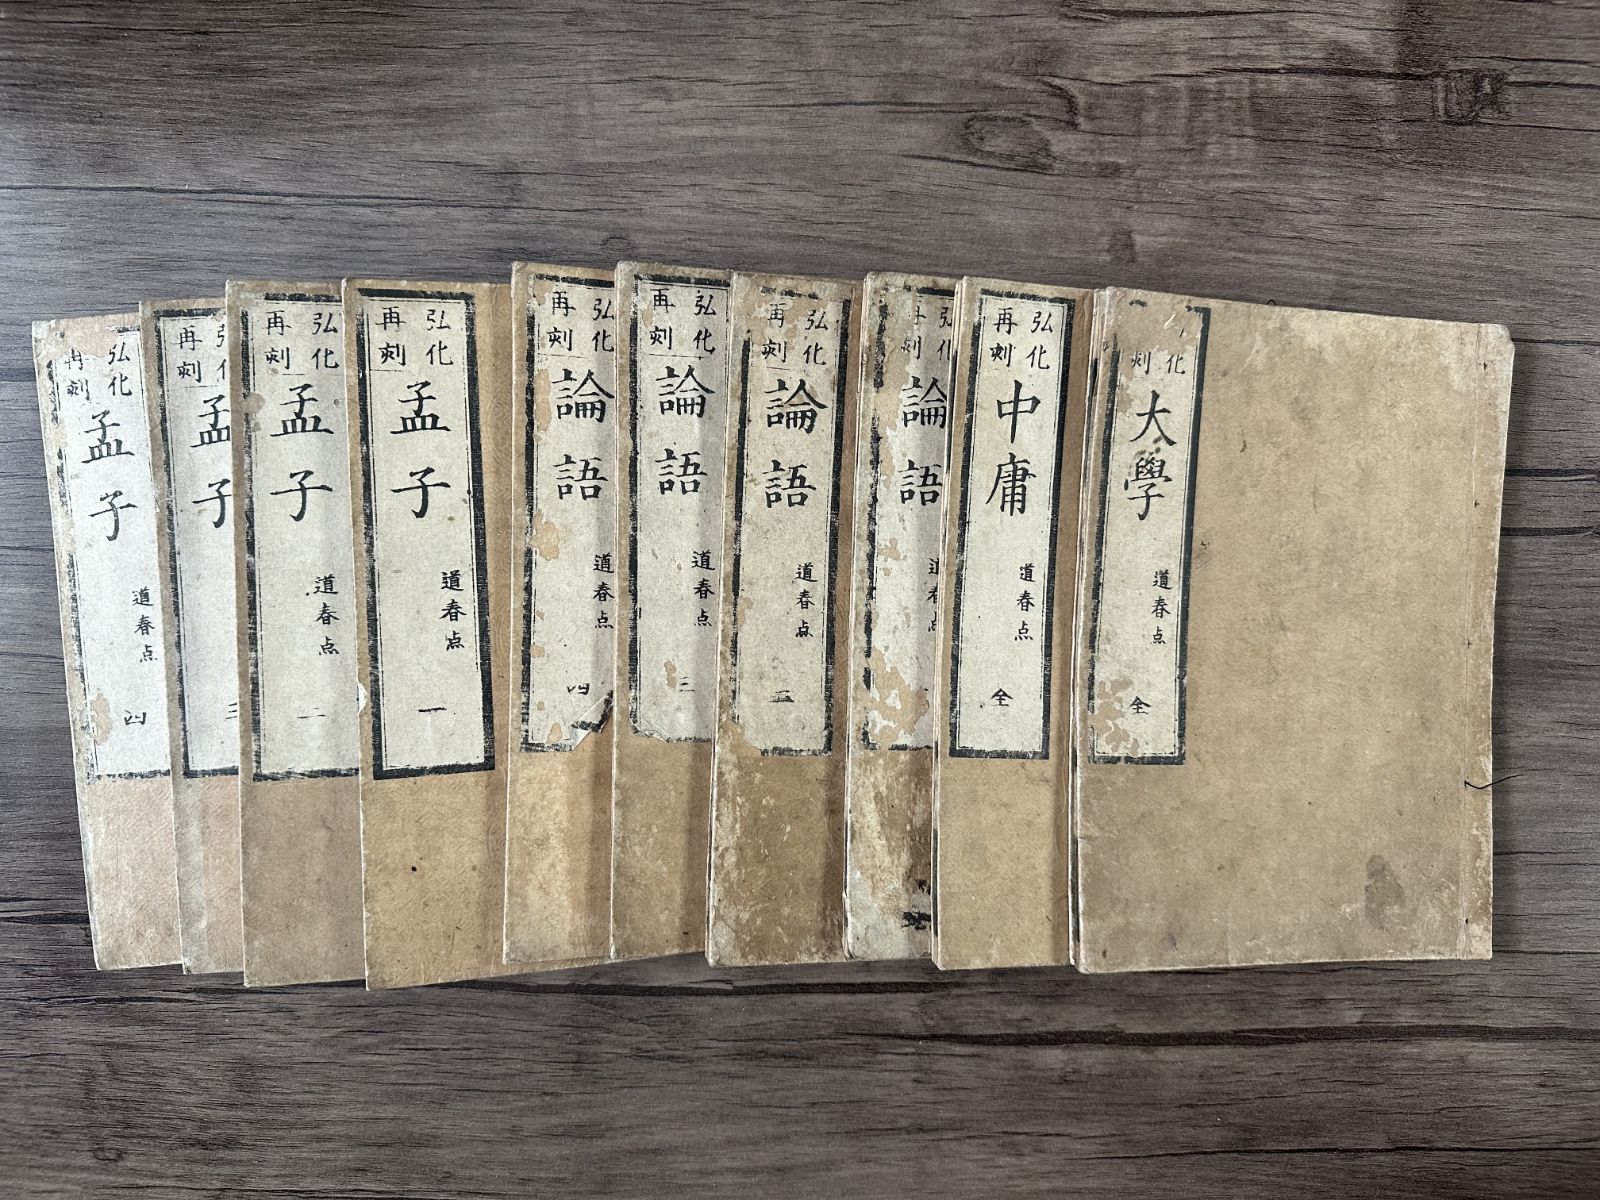 化
刻
大學
道春点
全
弘化
再刻
中庸
道春点
全
弘化
再刻
論語
道春点
弘化
再刻
論語
道春点
二
弘化
再刻
論語
道春点
三
弘化
再刻
論語
道春点
四
弘化
再刻
孟子
道春点
一
弘化
再刻
孟子
道春点
二
弘化
再刻
孟子
三
弘化
再刻
孟子
道春点
四